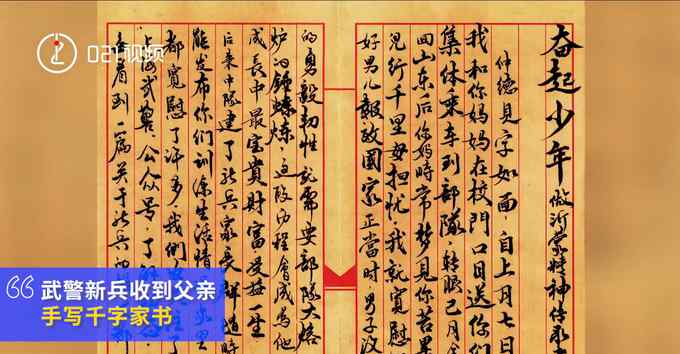 021视频
奋起少年 做沂蒙精神传承
仲德見字如面，自上月七日
我和你妈妈在校門口目送你们
集体乘车到部隊，轉瞬已月
回山东后你妈時常梦見你苦累
兒行千里母担忧，我就寬慰
好男儿報效國家正當时，男子汉
的勇毅韧性就需要部隊大熔
這段历程會成为他
成長中最宝貴財富受益一生
后来中隊建了新兵家長群適時
能发布你们訓练生活情
都寬慰了许多我們
上海武警公众号，了解
看到一篇关于新兵
武警新兵收到父亲
手写千字家书